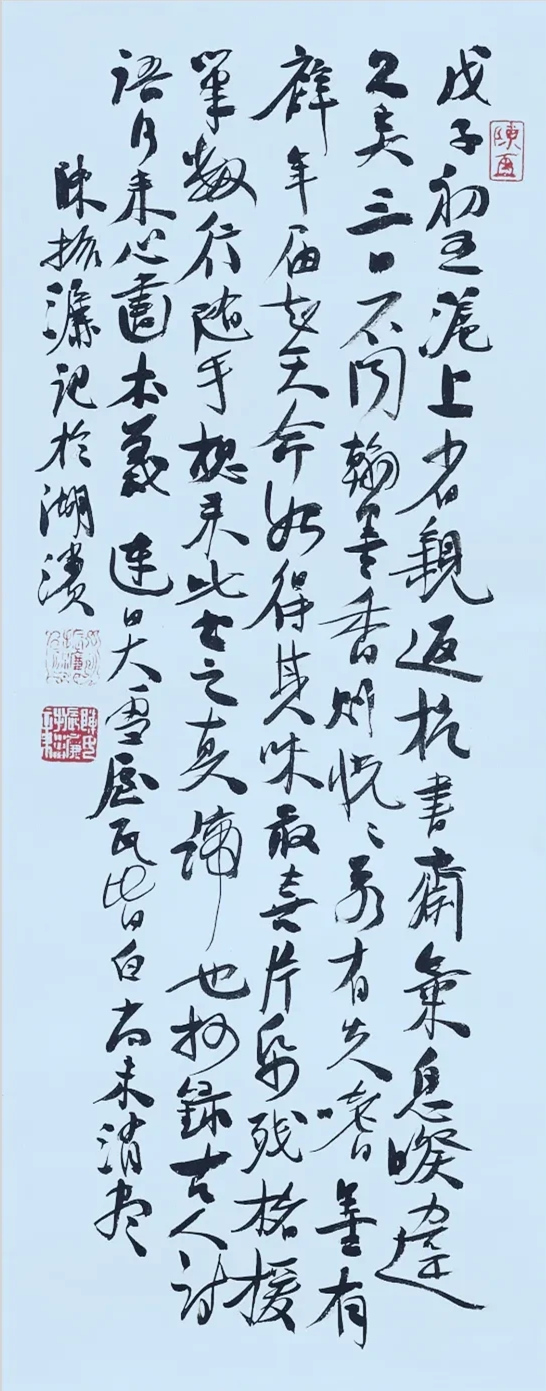 戊子初五滬上省親返杭書齋氣息暌違
久矣三日不聞翰墨香則恍恍若有失嗜墨有
癖年屆知天命始得其味最喜片帋殘楮援
筆數行隨手來此之真諦也抄錄古人詩
語何來心畫本義連日大雪屋瓦皆白尚未消盡
陳振濂記於湖濱